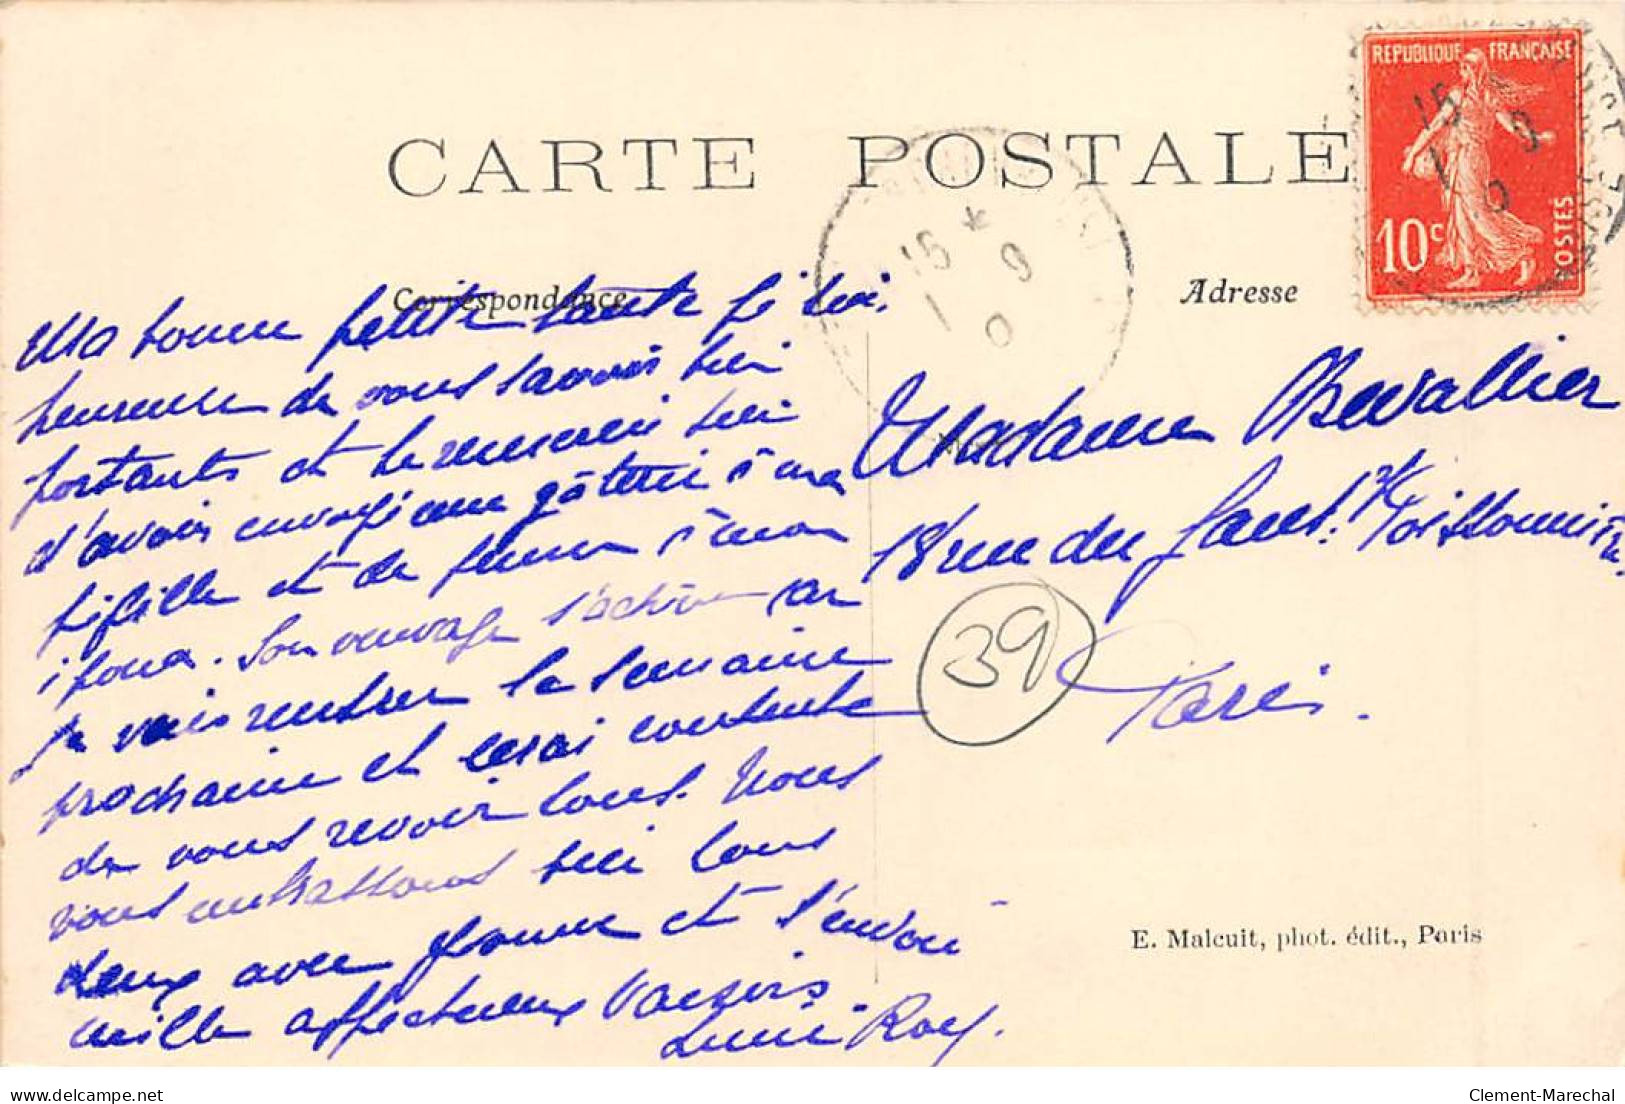 CARTE POSTALE
REPUBLIQUE FRANÇAISE
10c
POSTES
15 9
15 * 9
Correspondance
Adresse
Ma bonne petite tante je suis
heureuse de vous savoir bien
portants et te remercie bien
d'avoir envoyé une gâterie à ma
fifille et de penser à mon
. Son ouvrage s'achève car
je vais rentrer la semaine
prochaine et serai contente
de vous revoir tous. Nous
vous embrassons bien tous
deux avec et t'envoie
mille affectueux baisers
Lucie Roy.
Madame Chevallier
18 rue du faub. Poissonnière
Paris.
39
E. Malcuit, phot. édit., Paris
delcampe.net
Clement-Marechal